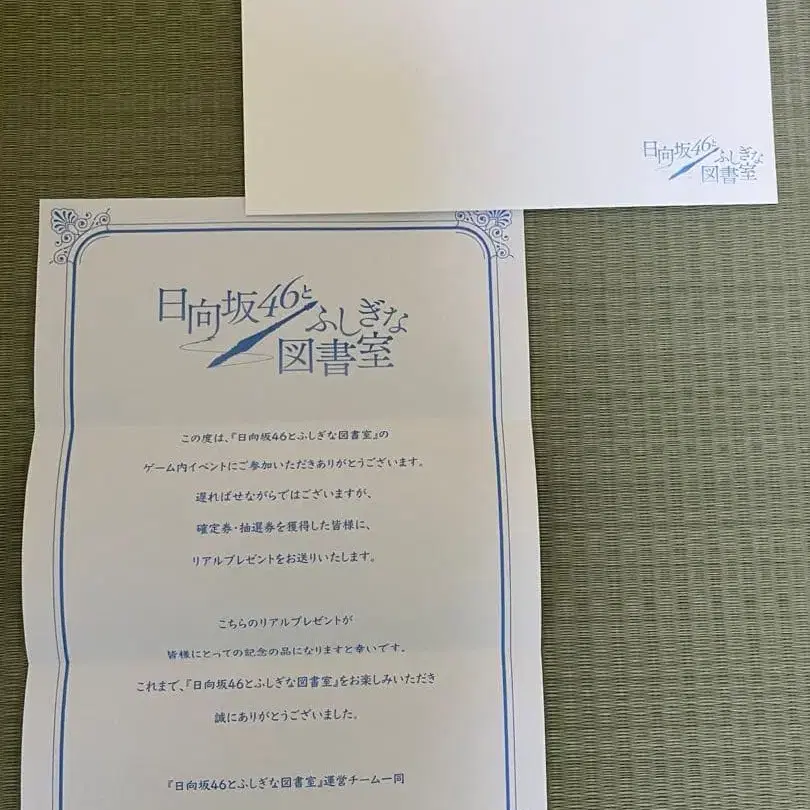 日向坂46と
ふしぎな
図書室
日向坂46と
ふしぎな
図書室
この度は、『日向坂46とふしぎな図書室』の
ゲーム内イベントにご参加いただきありがとうございます。
遅ればせながらではございますが、
確定券・抽選券を獲得した皆様に、
リアルプレゼントをお送りいたします。
こちらのリアルプレゼントが
皆様にとっての記念の品になりますと幸いです。
これまで、『日向坂46とふしぎな図書室』をお楽しみいただき
誠にありがとうございました。
『日向坂46とふしぎな図書室』運営チーム一同